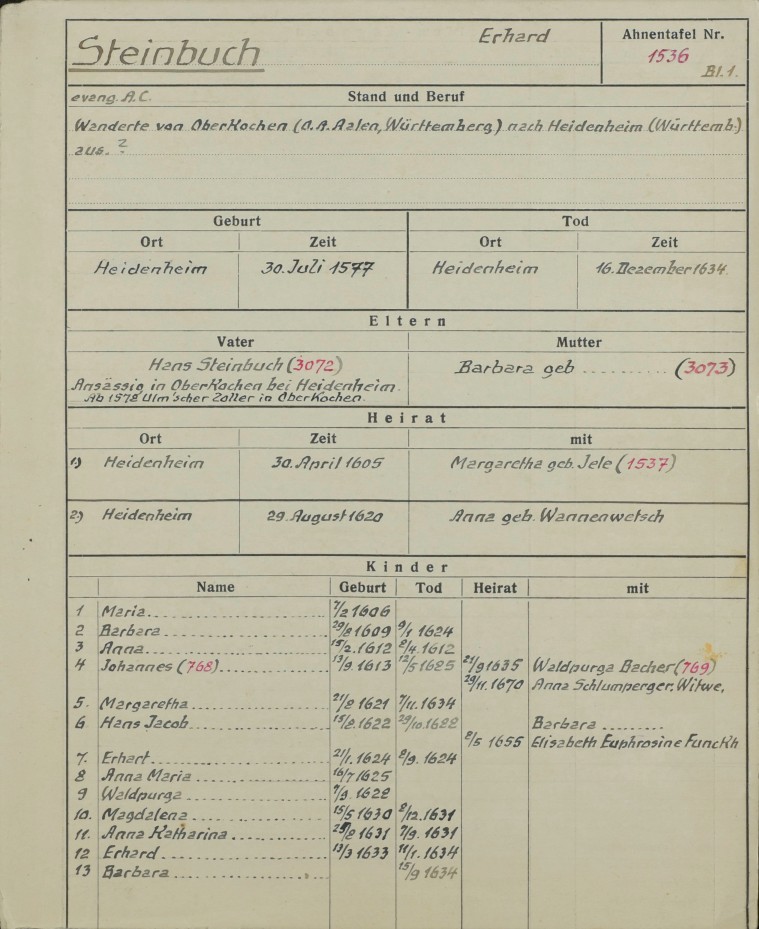 Steinbuch Erhard Ahnentafel Nr.
1536
Bl. 1.
evang. A.C. Stand und Beruf
Wanderte von Oberkochen (O.A. Aalen, Württemberg) nach Heidenheim (Württemb.)
aus. ?
Geburt Tod
Ort Zeit Ort Zeit
Heidenheim 30. Juli 1577 Heidenheim 16. Dezember 1634.
Eltern
Vater Mutter
Hans Steinbuch (3072) Barbara geb .......... (3073)
Ansässig in Oberkochen bei Heidenheim.
Ab 1578 Ulm'scher Zoller in Oberkochen.
Heirat
Ort Zeit mit
1) Heidenheim 30. April 1605 Margaretha geb. Jele (1537)
2) Heidenheim 29. August 1620 Anna geb. Wannenwetsch
Kinder
Name Geburt Tod Heirat mit
1 Maria 7/2 1606
2 Barbara 29/8 1609 9/1 1624
3 Anna 15/2. 1612 8/4. 1612
4 Johannes (768) 13/9. 1613 12/5 1685 21/9 1635 Waldpurga Bacher (769)
29/11. 1670 Anna Schlumperger. Witwe,
5. Margaretha 21/8 1621 7/11. 1634
6. Hans Jacob 15/8. 1622 29/10. 1688 Barbara ........
8/5 1655 Elisabeth Euphrosine Funckh
7. Erhart 21/1. 1624 8/9. 1624
8 Anna Maria 16/7 1625
9 Waldpurga 7/9. 1628
10. Magdalena 15/5 1630 8/12. 1631
11. Anna Katharina 1631 7/9. 1631
12 Erhard 13/3 1633 11/1. 1634
13 Barbara 15/9 1634